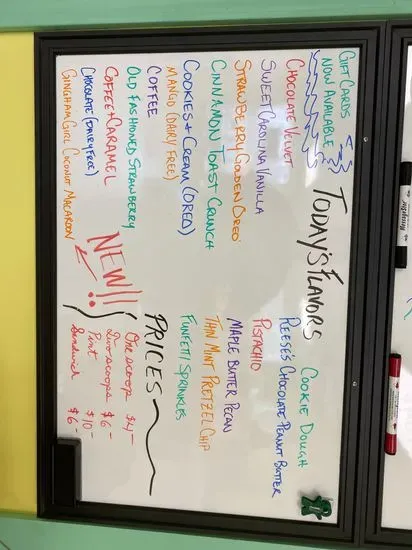 GIFT CARDS
NOW AVAILABLE
TODAY'S FLAVORS
CHOCOLATE VELVET
SWEET CAROLINA VANILLA
STRAWBERRY GOLDEN OREO
CINNAMON TOAST CRUNCH
COOKIES + CREAM (OREO)
MANGO (DAIRY FREE)
COFFEE
OLD FASHIONED STRAWBERRY
COFFEE + CARAMEL
CHOCOLATE (DAIRY FREE)
GINGHAM GIRL COCONUT MACAROON
NEW!!!
COOKIE DOUGH
REESE'S CHOCOLATE PEANUT BUTTER
PISTACHIO
MAPLE BUTTER PECAN
THIN MINT PRETZEL CHIP
FUNFETTI SPRINKLES
PRICES
One scoop $4-
Two scoops $6-
Pint $10-
Sandwich $6-